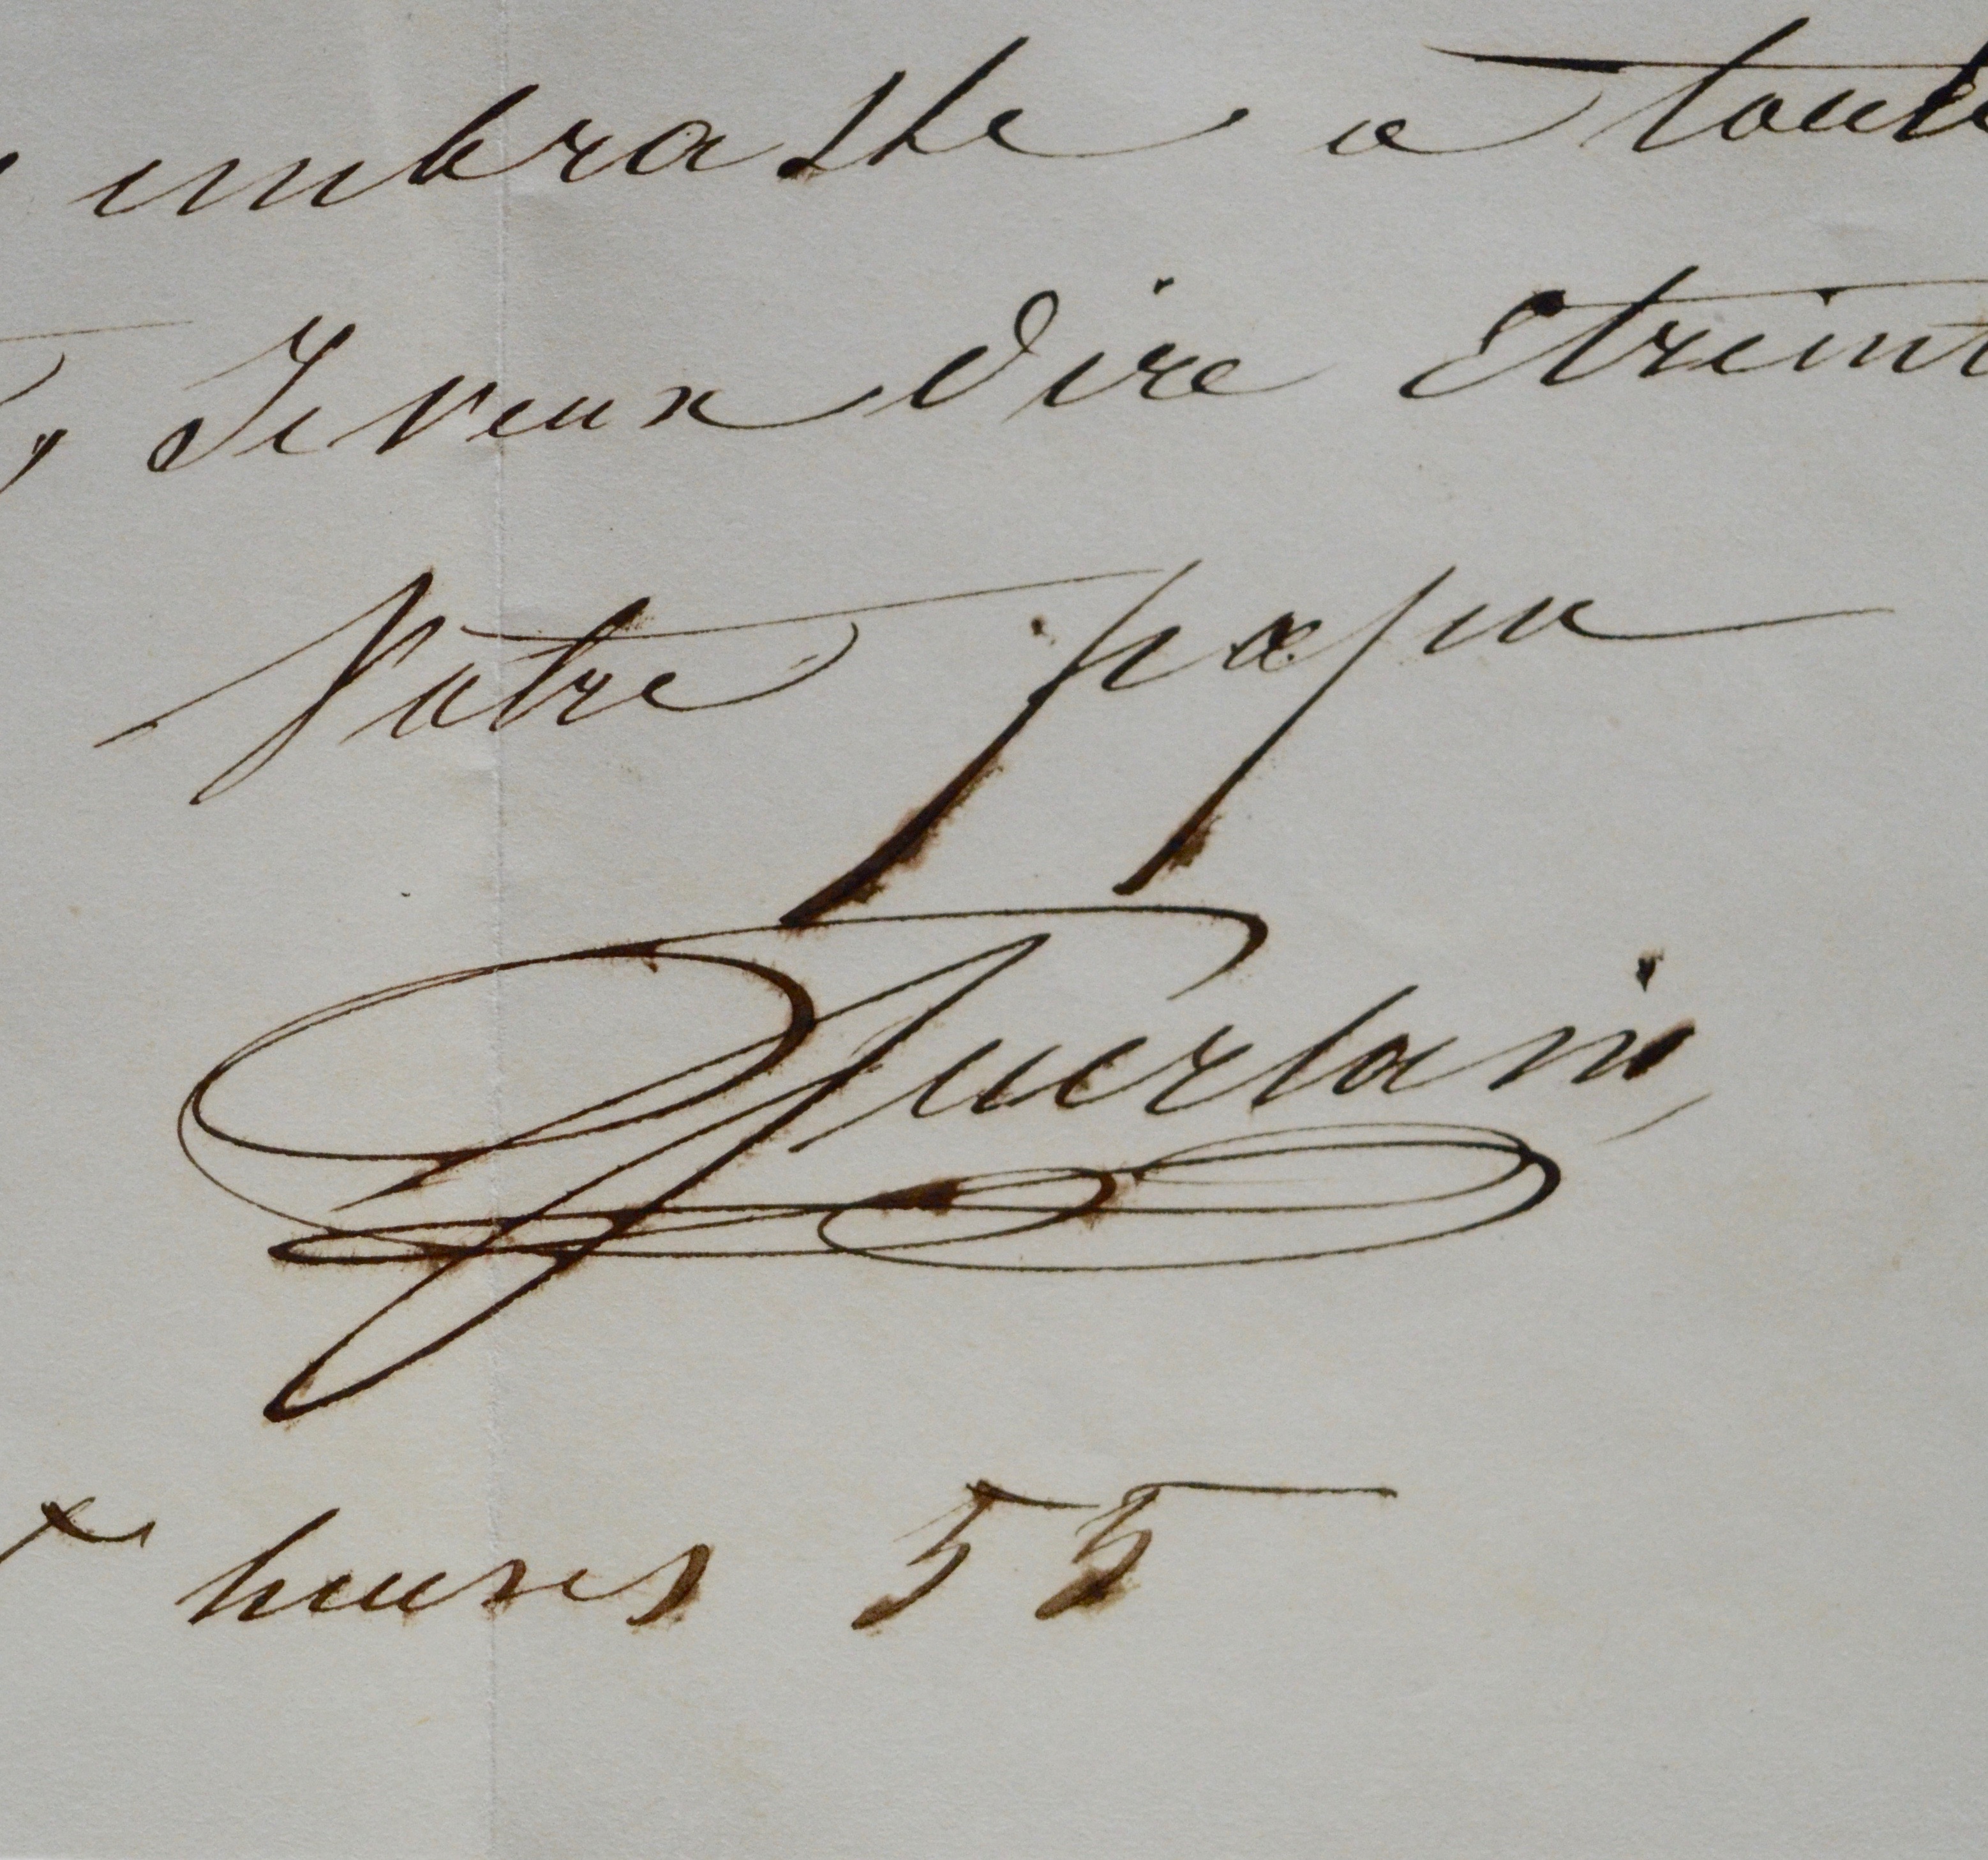 embrasse a toute
, Je veux dire etreint
Votre papa
Guerlain
heures 55